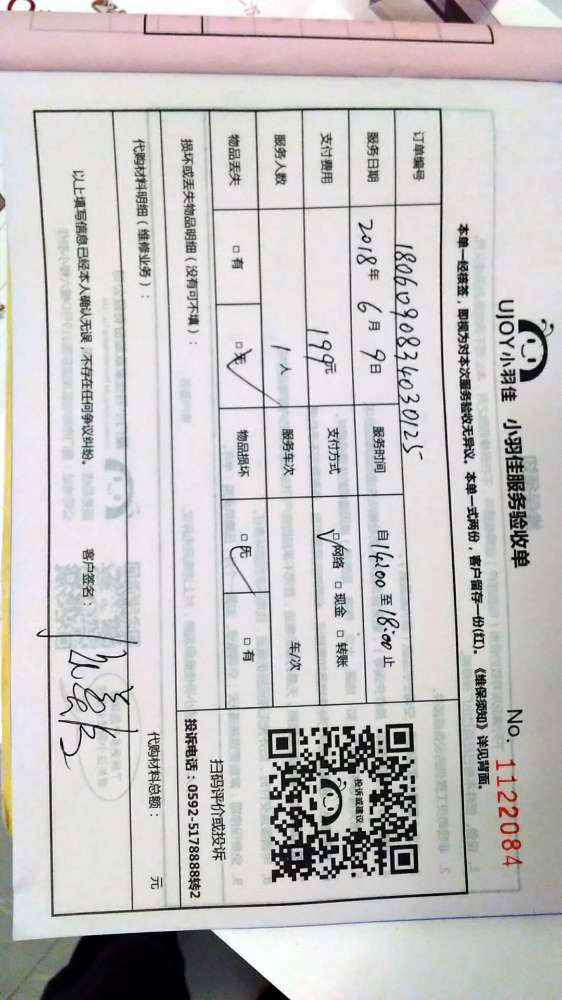 UJOY小羽佳 小羽佳服务验收单 No. 1122084
本单一经核签，即视为对本次服务验收无异议。本单一式两份，客户留存一份(红)。《维保须知》详见背面。
订单编号
服务日期 2018年6月9日 服务时间 自14:00至18:00止
支付费用 199元 支付方式 □网络 □现金 □转账
服务人数 1人 服务车次 车/次
物品丢失 □有 □无 物品损坏 □无 □有
投诉或建议
扫码评价或投诉
投诉电话：0592-5178888转2
损坏或丢失物品明细（没有可不填）：
代购材料明细（维修业务）： 代购材料总额： 元
以上填写信息已经本人确认无误，不存在任何争议纠纷。 客户签名：